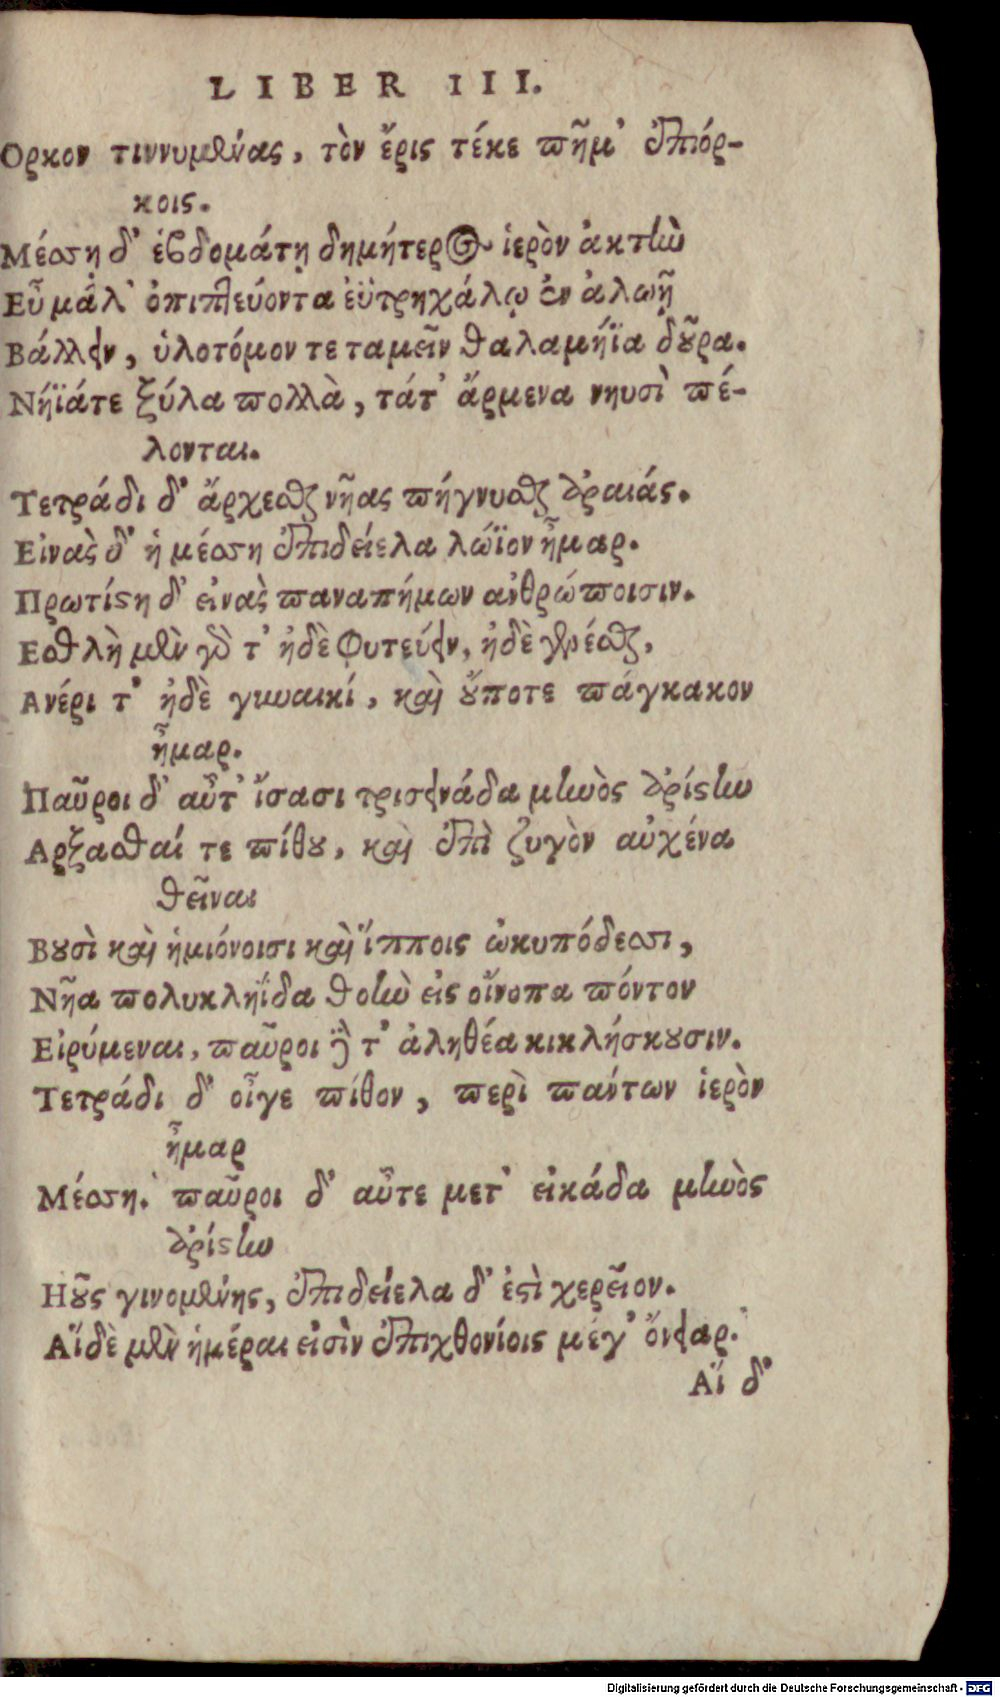 LIBER III.
Ορκον τιννυμένας, τὸν ἔρις τέκε πῆμ' ἐπιόρ-
κοις.
Μέσση δ' ἑβδομάτῃ δημήτερος ἱερὸν ἀκτὼ
Εὖ μάλ' ὀπιπλεύοντα ἐϋτρηχάλῳ ἐν ἀλωῇ
Βάλλειν, ὑλοτόμον τε ταμεῖν θαλαμήϊα δοῦρα.
Νήϊάτε ξύλα πολλὰ, τάτ' ἄρμενα νηυσὶ πέ-
λονται.
Τετράδι δ' ἄρχεσθαι νῆας πήγνυσθαι ἀραιάς.
Εἰνὰς δ' ἡ μέσση ἐπιδείελα λώϊον ἦμαρ.
Πρωτίστη δ' εἰνὰς παναπήμων ἀνθρώποισιν.
Εσθλὴ μὲν γάρ τ' ἠδὲ φυτεύειν, ἠδὲ γενέσθαι,
Ανέρι τ' ἠδὲ γυναικί, καὶ οὔποτε πάγκακον
ἦμαρ.
Παῦροι δ' αὖτ' ἴσασι τρισεινάδα μηνὸς ἀρίστην
Αρξασθαί τε πίθου, καὶ ἐπὶ ζυγὸν αὐχένα
θεῖναι
Βουσὶ καὶ ἡμιόνοισι καὶ ἵπποις ὠκυπόδεσσι,
Νῆα πολυκληΐδα θοὴν εἰς οἴνοπα πόντον
Εἰρύμεναι, παῦροι δέ τ' ἀληθέα κικλήσκουσιν.
Τετράδι δ' οἶγε πίθον, περὶ πάντων ἱερὸν
ἦμαρ
Μέσση. παῦροι δ' αὖτε μετ' εἰκάδα μηνὸς
ἀρίστην
Ηοῦς γινομένης, ἐπιδείελα δ' ἐστὶ χερεῖον.
Αἵδε μὲν ἡμέραι εἰσὶν ἐπιχθονίοις μέγ' ὄνειαρ.
Αἵ δ'
Digitalisierung gefördert durch die Deutsche Forschungsgemeinschaft - DFG